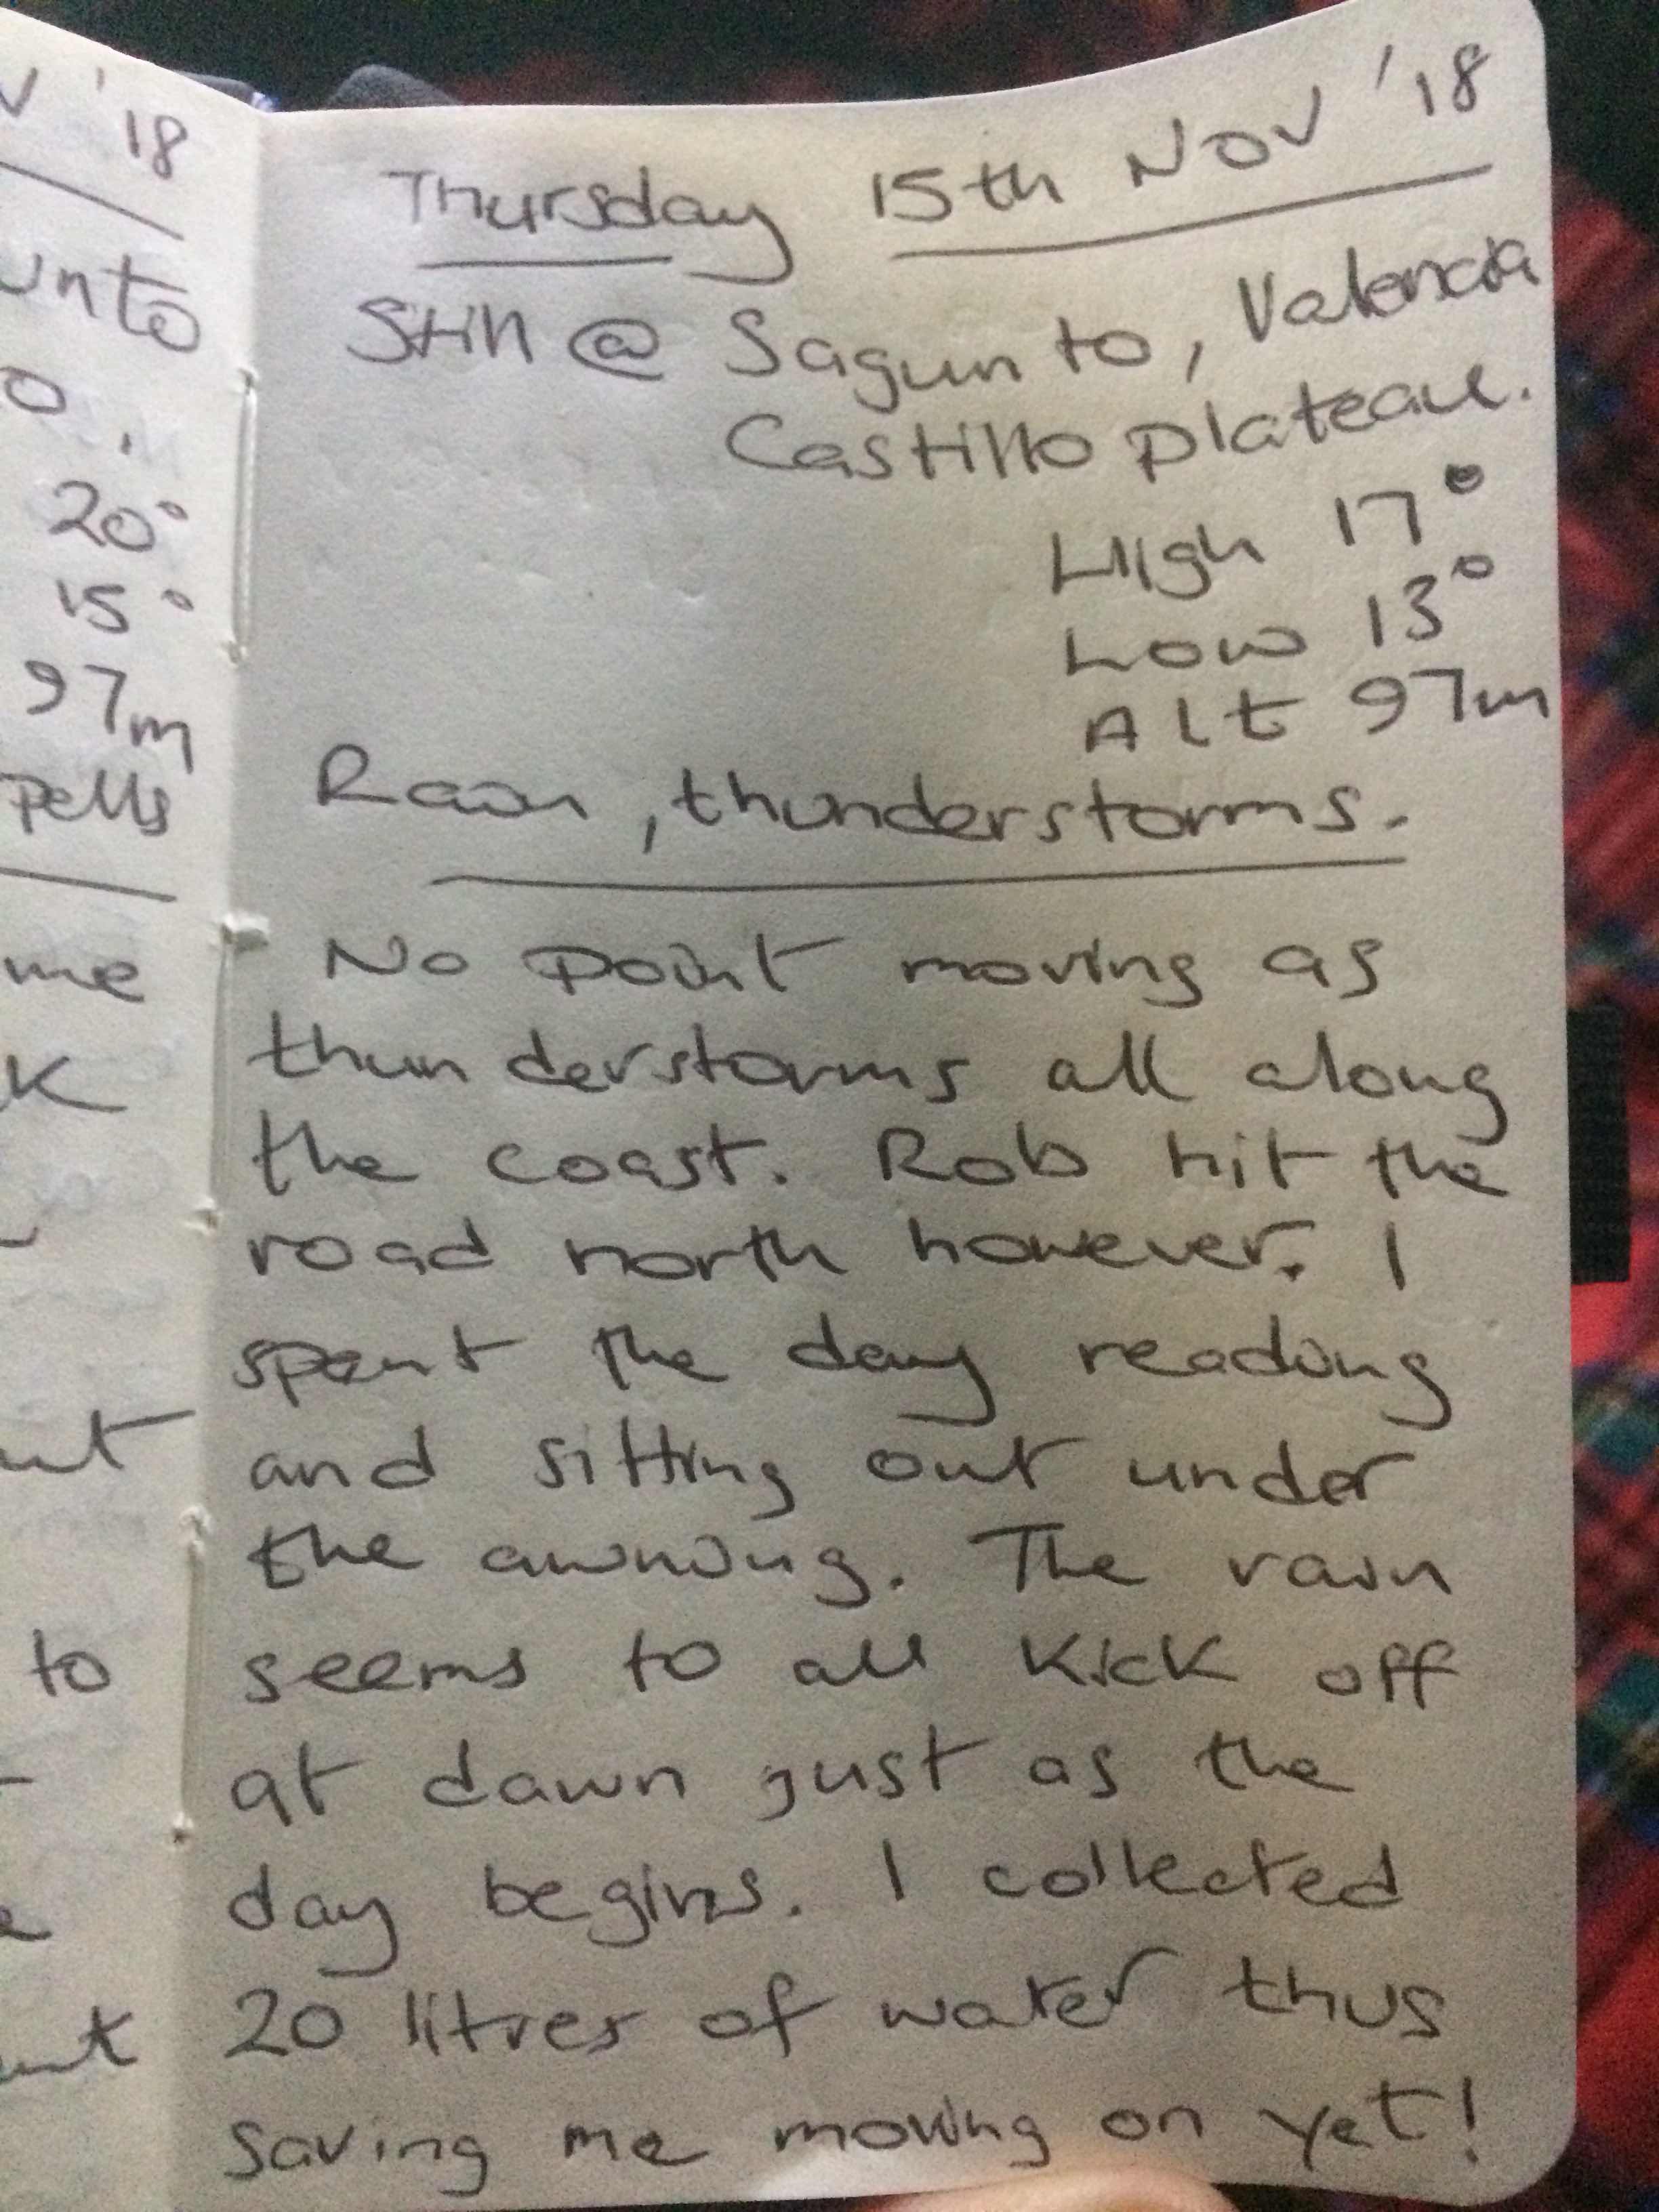 V '18
unto
O,
20°
15°
97m
pells
me
K
ut
to
e
ut
Thursday 15th NOV '18
Still @ Sagunto, Valencia
Castillo plateau.
High 17°
Low 13°
Alt 97m
Rain, thunderstorms.
No point moving as
thunderstorms all along
the coast. Rob hit the
road north however. I
spent the day reading
and sitting out under
the awning. The rain
seems to all kick off
at dawn just as the
day begins. I collected
20 litres of water thus
saving me moving on yet!